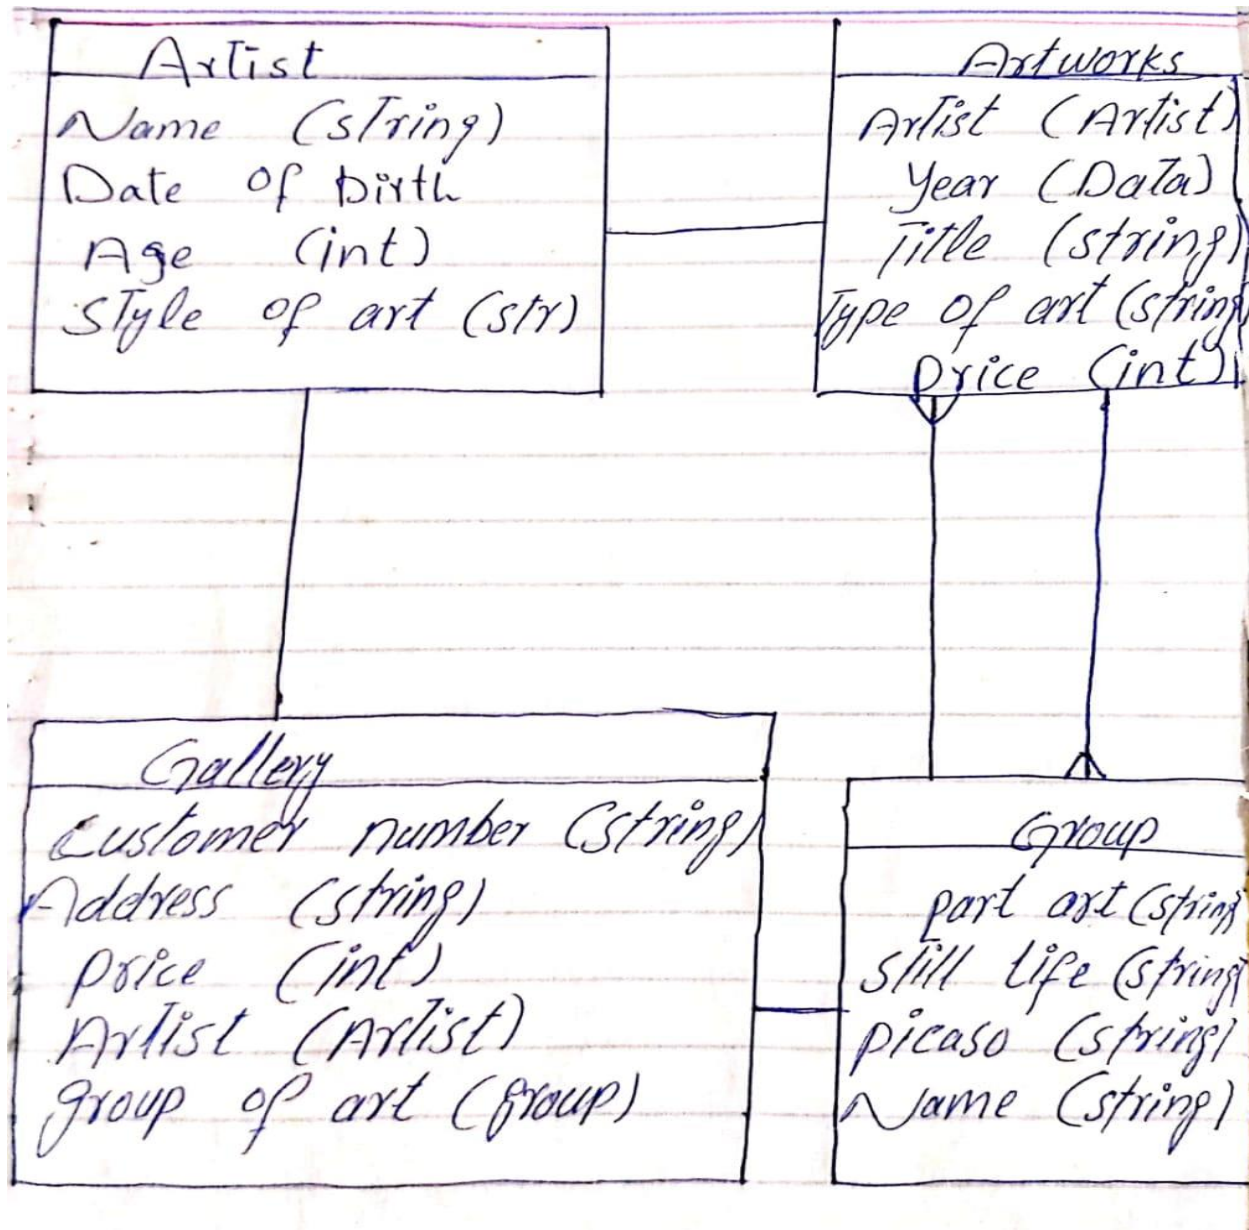 Artist
Name (string)
Date of birth
Age (int)
Style of art (str)
Artworks
Artist (Artist)
Year (Data)
Title (string)
Type of art (string)
Price (int)
Gallery
Customer number (string)
Address (string)
Price (int)
Artist (Artist)
group of art (group)
Group
part art (string
still life (string
picaso (string)
Name (string)